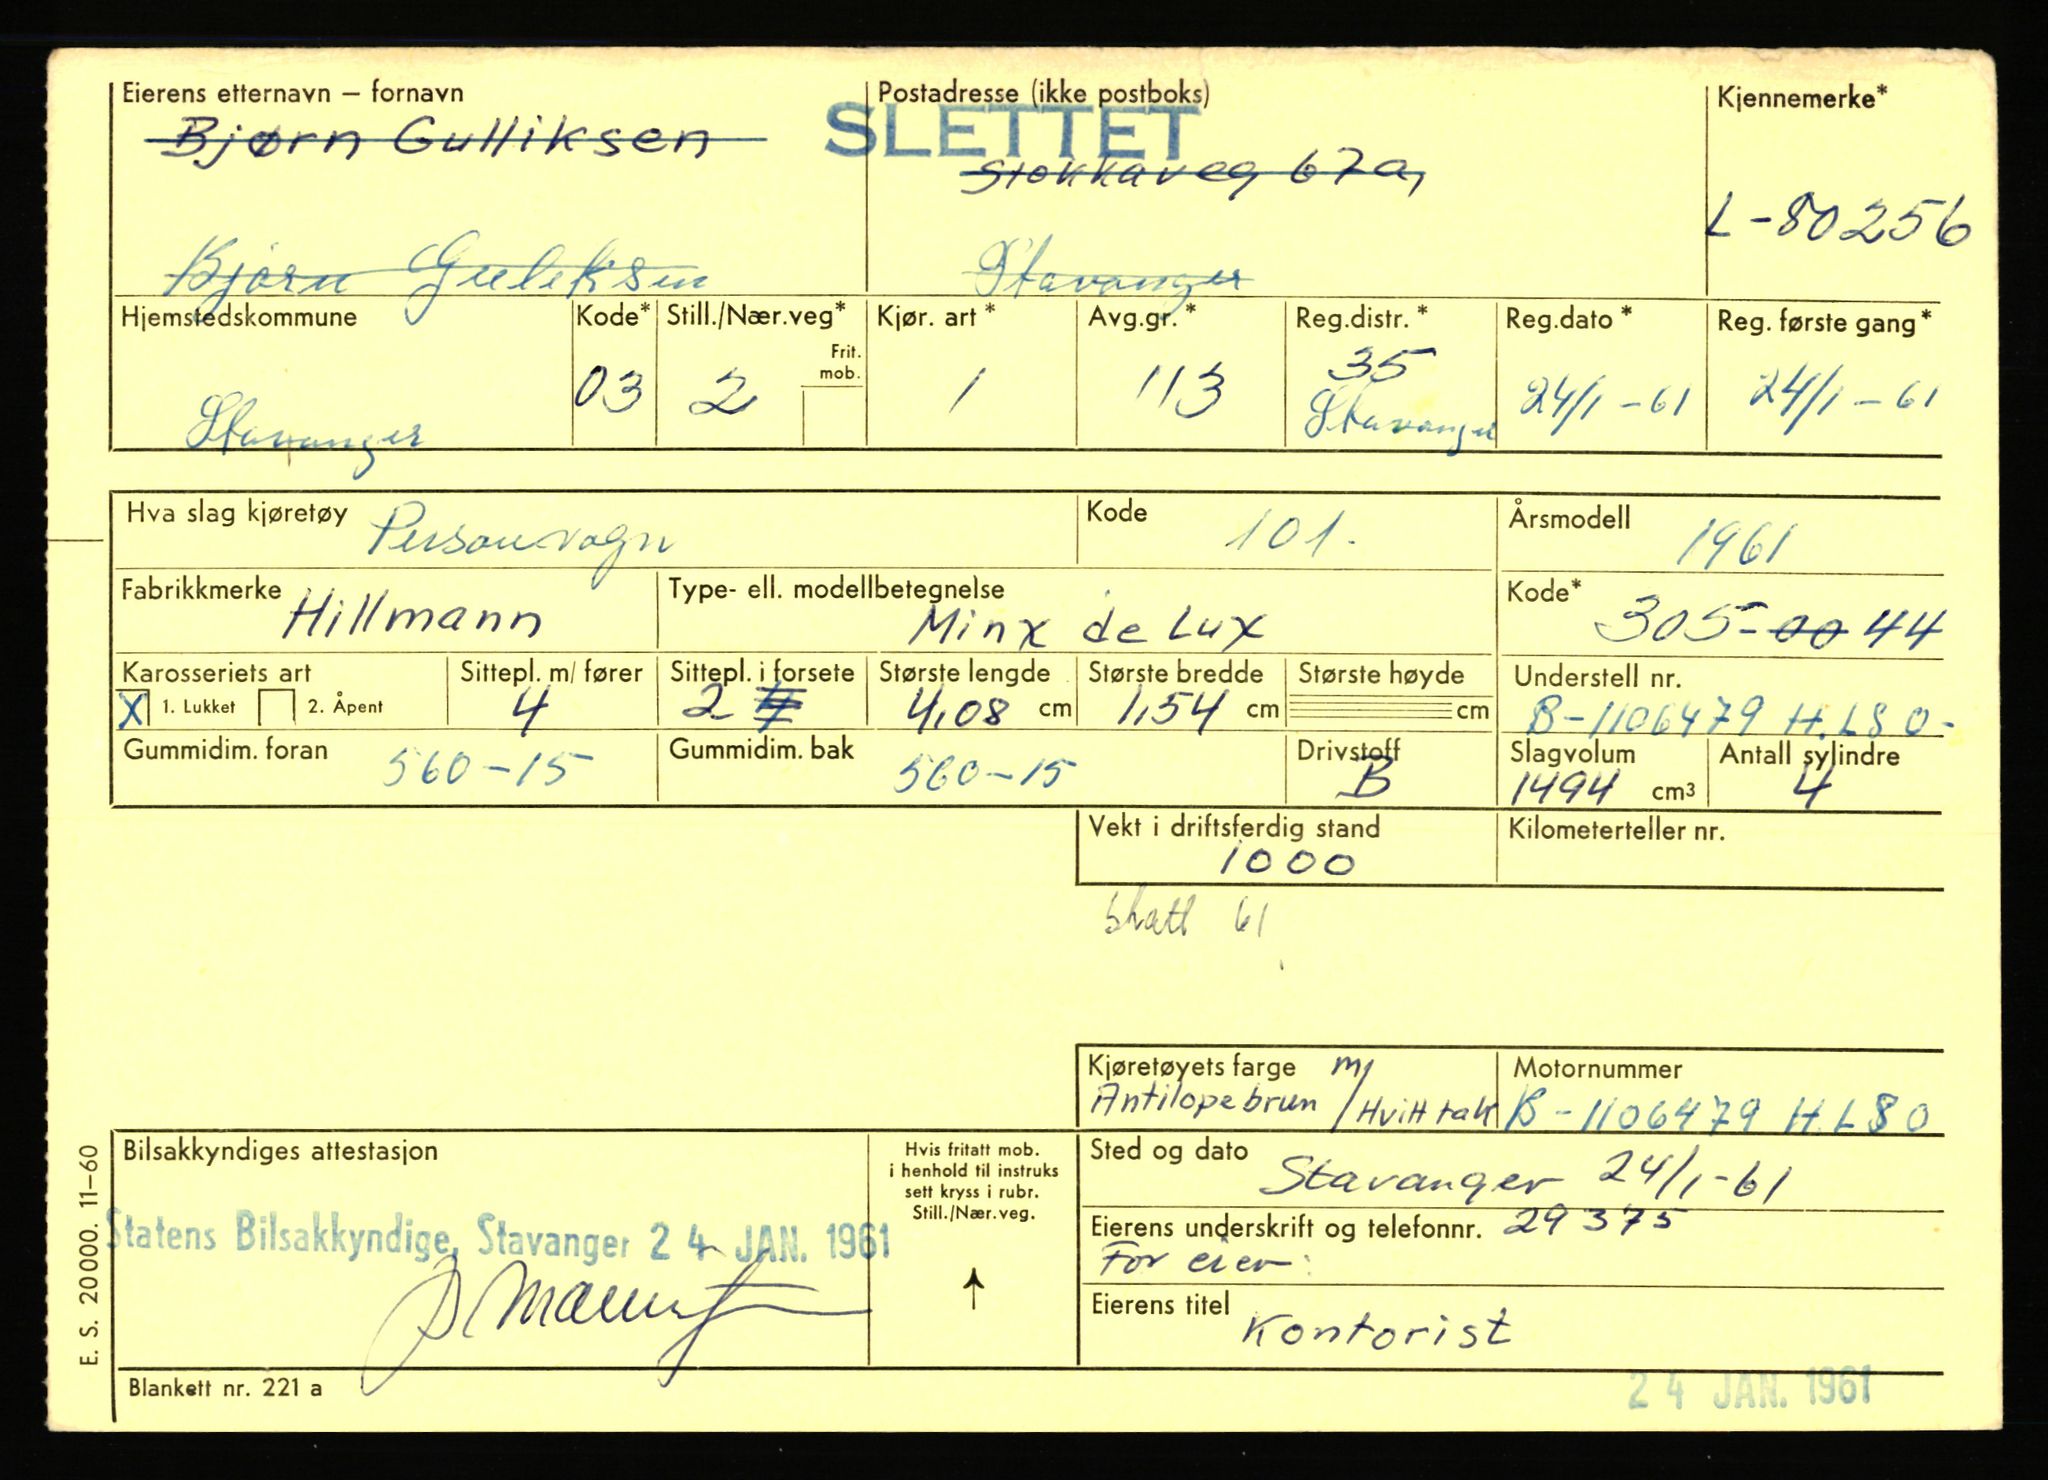 Eierens etternavn – fornavn
Postadresse (ikke postboks)
Kjennemerke*
SLETTET
Bjørn Gulliksen
Stokkaveg 67a,
L-80256
Bjørn Guliksen
Stavanger
Hjemstedskommune
Kode*
Still./Nær.veg*
Frit. mob.
Kjør. art*
Avg.gr.*
Reg.distr.*
Reg.dato*
Reg. første gang*
Stavanger
03
2
1
113
35
Stavanger
24/1-61
24/1-61
Hva slag kjøretøy Personvogn
Kode 101.
Årsmodell 1961
Fabrikkmerke Hillmann
Type- ell. modellbetegnelse Minx de Lux
Kode* 305-00 44
Karosseriets art
X 1. Lukket 2. Åpent
Sittepl. m/ fører
4
Sittepl. i forsete
2
Største lengde
4,08 cm
Største bredde
1,54 cm
Største høyde
cm
Understell nr.
B-1106479 H.L80-
Gummidim. foran 560-15
Gummidim. bak 560-15
Drivstoff
B
Slagvolum
1494 cm³
Antall sylindre
4
Vekt i driftsferdig stand
1000
Kilometerteller nr.
skatt 61
Kjøretøyets farge m/
Antilopebrun / Hvitt tak
Motornummer
B-1106479 H.L80
Bilsakkyndiges attestasjon
Statens Bilsakkyndige, Stavanger 24 JAN. 1961
Hvis fritatt mob.
i henhold til instruks
sett kryss i rubr.
Still./Nær.veg.
Sted og dato
Stavanger 24/1-61
Eierens underskrift og telefonnr. 29375
For eier:
Eierens titel
Kontorist
E. S. 20000. 11–60
Blankett nr. 221 a
24 JAN. 1961